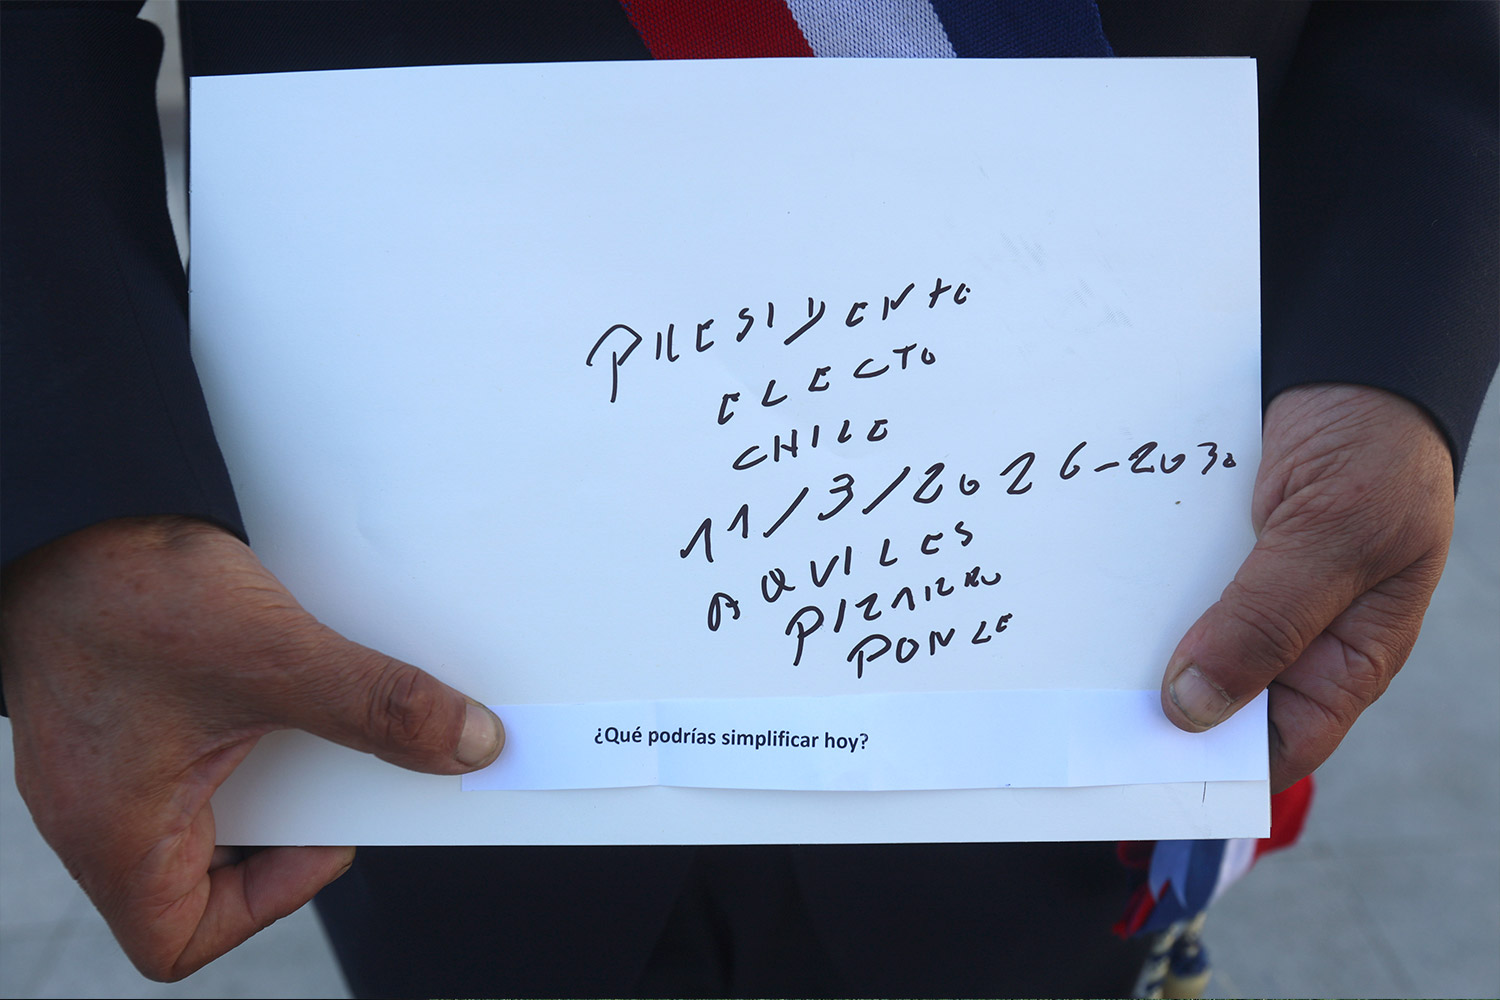 PRESIDENTE
ELECTO
CHILE
11/3/2026-2030
AQUILES
PIZARRO
PONCE
¿Qué podrías simplificar hoy?